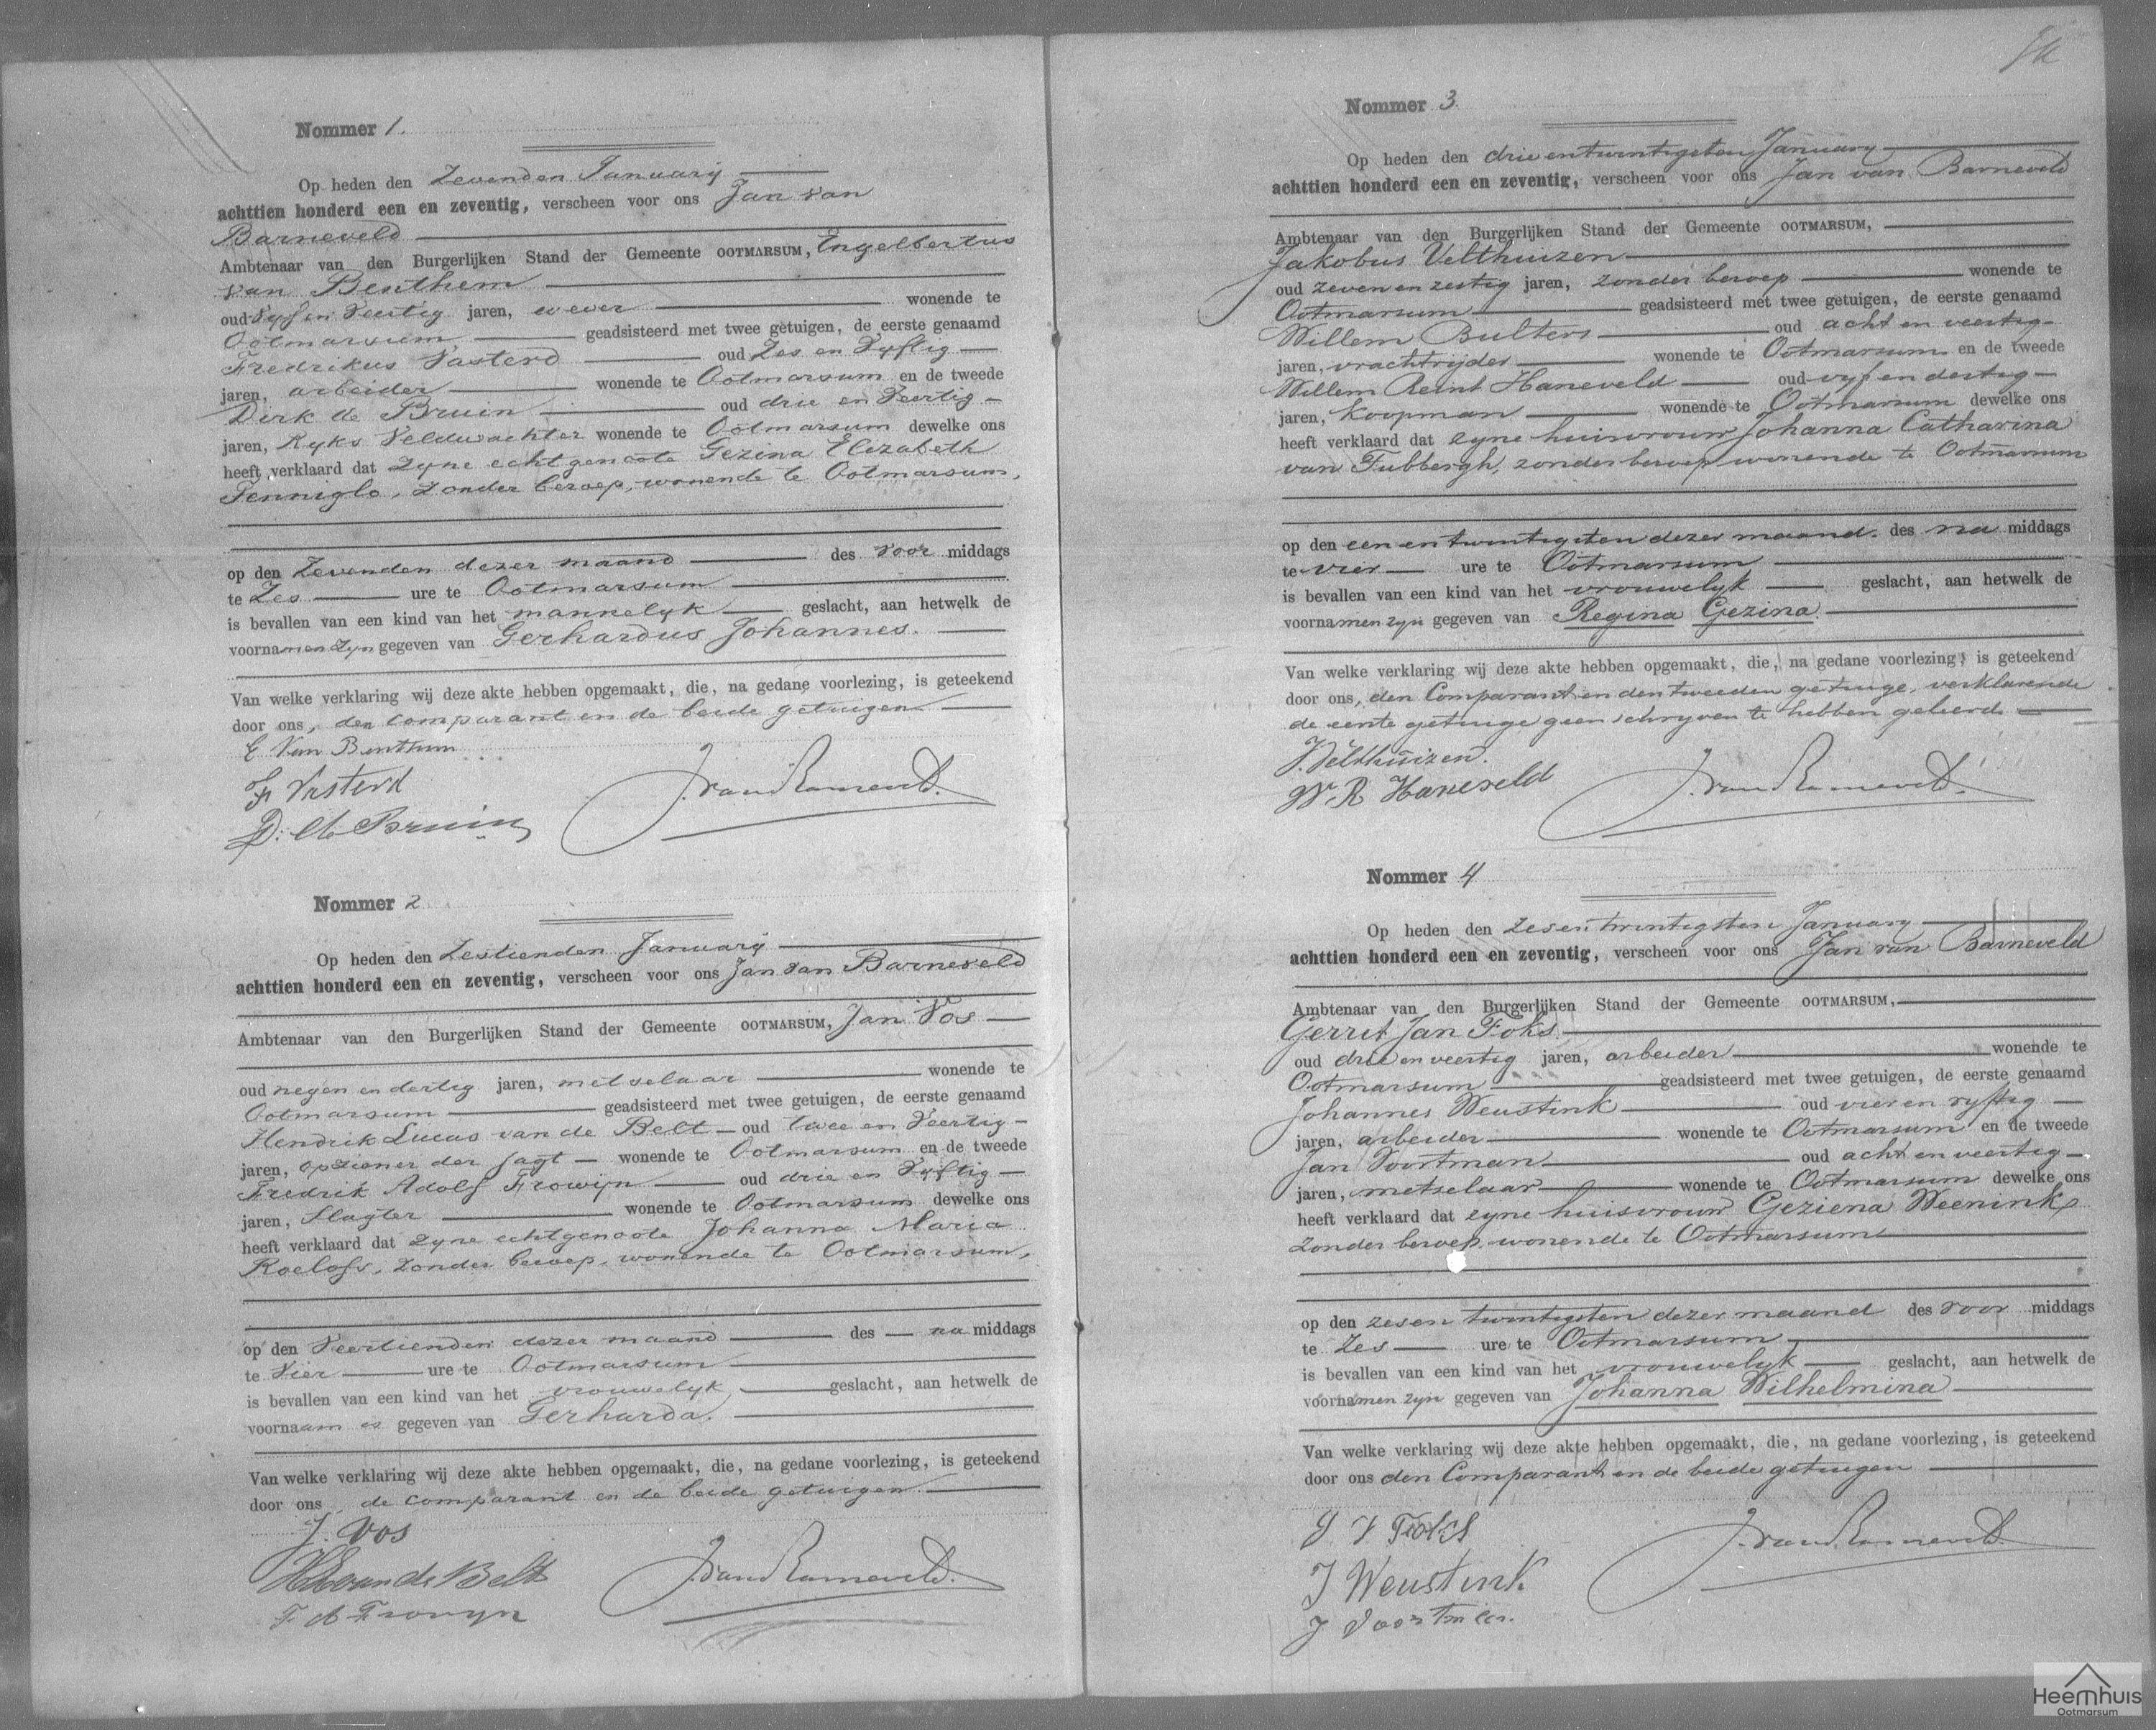 Nommer 1.
Op heden den Zevenden Januarij
achttien honderd een en zeventig, verscheen voor ons Jan van
Barneveld
Ambtenaar van den Burgerlijken Stand der Gemeente OOTMARSUM, Engelbertus
van Benthem
oud Vyf en Veertig jaren, wever wonende te
Ootmarsum geadsisteerd met twee getuigen, de eerste genaamd
Fredrikus Vasterd oud Zes en Vyftig
jaren, arbeider wonende te Ootmarsum en de tweede
Dirk de Bruin oud drie en Veertig
jaren, Ryks Veldwachter wonende te Ootmarsum dewelke ons
heeft verklaard dat Zyne echtgenoote Gezina Elizabeth
Penniglo, Zonder beroep, wonende te Ootmarsum,
op den Zevenden dezer maand des voor middags
te Zes ure te Ootmarsum
is bevallen van een kind van het mannelyk geslacht, aan hetwelk de
voornamen Zyn gegeven van Gerhardus Johannes.
Van welke verklaring wij deze akte hebben opgemaakt, die, na gedane voorlezing, is geteekend
door ons, den comparant en de beide getuigen
E Van Benthum
F Vasterd
D: de Bruin
J. van Barneveld.
Nommer 2
Op heden den Zestienden Januarij
achttien honderd een en zeventig, verscheen voor ons Jan van Barneveld
Ambtenaar van den Burgerlijken Stand der Gemeente OOTMARSUM, Jan Vos
oud negen en dertig jaren, metselaar wonende te
Ootmarsum geadsisteerd met twee getuigen, de eerste genaamd
Hendrik Lucas van de Belt oud twee en Veertig
jaren, opziener der jagt wonende te Ootmarsum en de tweede
Fredrik Adolf Frowijn oud drie en Vyftig
jaren, Slagter wonende te Ootmarsum dewelke ons
heeft verklaard dat Zyne echtgenoote Johanna Maria
Roelofs, Zonder beroep, wonende te Ootmarsum,
op den Veertienden dezer maand des na middags
te Vier ure te Ootmarsum
is bevallen van een kind van het vrouwelyk geslacht, aan hetwelk de
voornaam is gegeven van Gerharda.
Van welke verklaring wij deze akte hebben opgemaakt, die, na gedane voorlezing, is geteekend
door ons, de comparant en de beide getuigen
J. Vos
HL van de Belt
F. A Frowyn
J. van Barneveld.
Nommer 3.
Op heden den drieentwintigsten January
achttien honderd een en zeventig, verscheen voor ons Jan van Barneveld
Ambtenaar van den Burgerlijken Stand der Gemeente OOTMARSUM,
Jakobus Velthuizen
oud zeven en zestig jaren, zonder beroep wonende te
Ootmarsum geadsisteerd met twee getuigen, de eerste genaamd
Willem Bulters oud acht en veertig
jaren, vrachtrijder wonende te Ootmarsum en de tweede
Willem Reint Haneveld oud vyf en dertig
jaren, Koopman wonende te Ootmarsum dewelke ons
heeft verklaard dat zyne huisvrouw Johanna Catharina
van Tubbergh, zonder beroep wonende te Ootmarsum
op den een en twintigsten dezer maand. des na middags
te vier ure te Ootmarsum
is bevallen van een kind van het vrouwelyk geslacht, aan hetwelk de
voornamen zyn gegeven van Regina Gezina.
Van welke verklaring wij deze akte hebben opgemaakt, die, na gedane voorlezing, is geteekend
door ons, den Comparant en den tweeden getuige, verklarende
de eerste getuige geen schryven te hebben geleerd.
J. Velthuizen.
W. R Haneveld
J. van Barneveld.
Nommer 4
Op heden den zesentwintigsten January
achttien honderd een en zeventig, verscheen voor ons Jan van Barneveld
Ambtenaar van den Burgerlijken Stand der Gemeente OOTMARSUM,
Gerrit Jan Foks
oud drie en veertig jaren, arbeider wonende te
Ootmarsum geadsisteerd met twee getuigen, de eerste genaamd
Johannes Weustink oud vier en vyftig
jaren, arbeider wonende te Ootmarsum en de tweede
Jan Voortman oud acht en veertig
jaren, metselaar wonende te Ootmarsum dewelke ons
heeft verklaard dat zyne huisvrouw Geziena Weenink,
zonder beroep wonende te Ootmarsum
op den zesen twintigsten dezer maand des voor middags
te Zes ure te Ootmarsum
is bevallen van een kind van het vrouwelyk geslacht, aan hetwelk de
voornamen zyn gegeven van Johanna Wilhelmina
Van welke verklaring wij deze akte hebben opgemaakt, die, na gedane voorlezing, is geteekend
door ons den Comparant en de beide getuigen
G J Foks
J Weustink
J Voortman.
J. van Barneveld.
Heemhuis
Ootmarsum